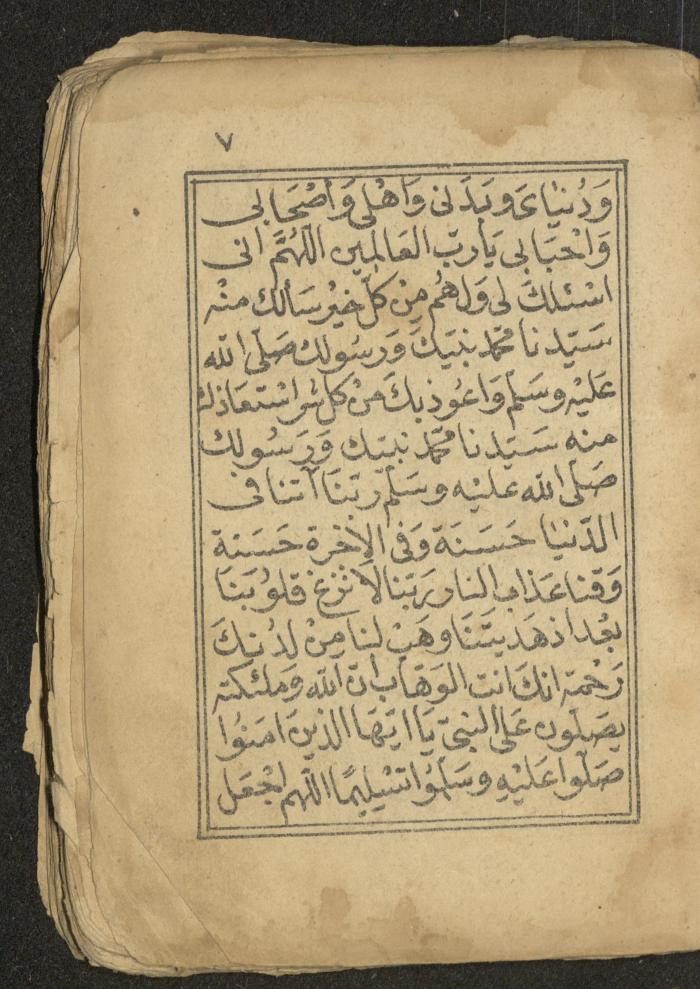 ٧
وَدُنْيَاىَ وبَدَنى وَاَهْلى وَاَصْحَابى
وَاَحْبَابى يَارَبّ العَالمِين اللّهُمَّ انى
اسْئلكَ لى وَلهُم مِن كلّ خيْر سَألك منْه
سَيّدنا محمّد نبيّكَ وَرَسُولك صَلّى الله
عَليْه وسَلّم وَاعُوذ بكَ منْ كل شر اسْتعَاذك
منه سَيّدنا محمّد نبيّك وَرَسُولك
صَلّى الله عليْه وسَلّم رَبّنَا آتنا فى
الدّنيا حَسَنَة وَفى الآخرة حَسَنة
وَقنا عَذاب النار رَبّنا لاَ تزغ قلوُبَنَا
بعْد اذ هَديتَنَا وهَبْ لنا مِنْ لدُنكَ
رَحْمة انكَ انت الوَهّاب انّ الله وَملئكته
يصَلّون عَلى النبيّ يَا ايّهَا الذينَ امَنُوا
صَلّوا عَليْهِ وسَلّمُوا تسْليمًا اللّهم اجْعَل